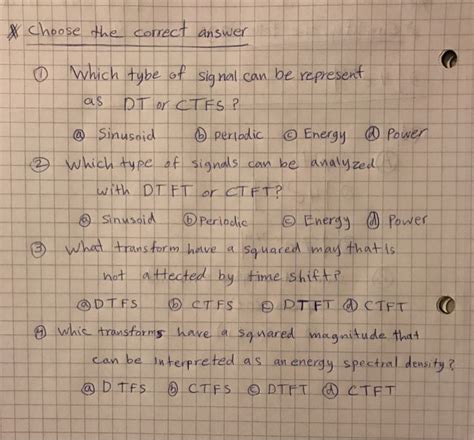 * Choose the correct answer
① Which tybe of signal can be represent
as DT or CTFS ?
ⓐ Sinusoid ⓑ perIodic ⓒ Energy ⓓ Power
② which type of signals can be analyzed
with DTFT or CTFT?
ⓐ sinusoid ⓑ Periodic ⓒ Energy ⓓ Power
③ what transform have a squared may that is
not attected by time shift?
ⓐ DTFS ⓑ CTFS ⓒ DTFT ⓓ CTFT
④ whic transforms have a squared magnitude that
can be Interpreted as an energy spectral density?
ⓐ DTFS ⓑ CTFS ⓒ DTFT ⓓ CTFT